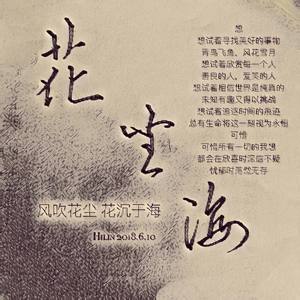 花
尘
海
想
想试着寻找美好的事物
青鸟飞鱼、风花雪月
想试着欣赏每一个人
善良的人，爱笑的人
想试着相信世界是纯真的
未知有趣又得以挑战
想试着追逐时间的痕迹
总有生命将这一刻视为永恒
可惜
可惜所有一切的我想
都会在欣喜时深信不疑
忧郁时荡然无存
风吹花尘 花沉于海
HILIN 2018.6.10